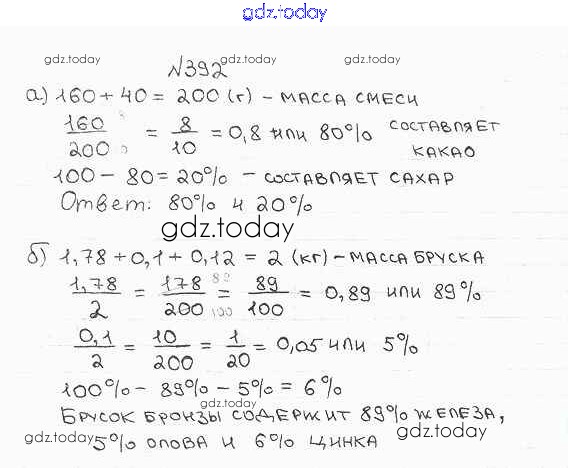 gdz.today
gdz.today gdz.today gdz.today
№392
а) 160 + 40 = 200 (г) - МАССА СМЕСИ
160/200 = 8/10 = 0,8 или 80% СОСТАВЛЯЕТ КАКАО
100 - 80 = 20% - СОСТАВЛЯЕТ САХАР
Ответ: 80% и 20%
gdz.today
б) 1,78 + 0,1 + 0,12 = 2 (кг) - МАССА БРУСКА
1,78/2 = 178/200 = 89/100 = 0,89 или 89%
0,1/2 = 10/200 = 1/20 = 0,05 или 5%
100% - 89% - 5% = 6%
gdz.today
БРУСОК БРОНЗЫ СОДЕРЖИТ 89% ЖЕЛЕЗА,
5% ОЛОВА И 6% ЦИНКА
gdz.today gdz.today